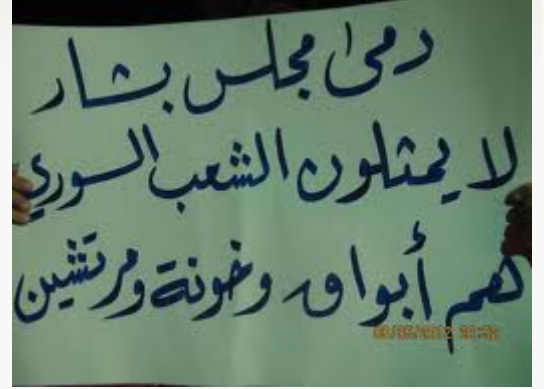 دمى مجلس بشار
لا يمثلون الشعب السوري
هم أبواق وخونة ومرتشين